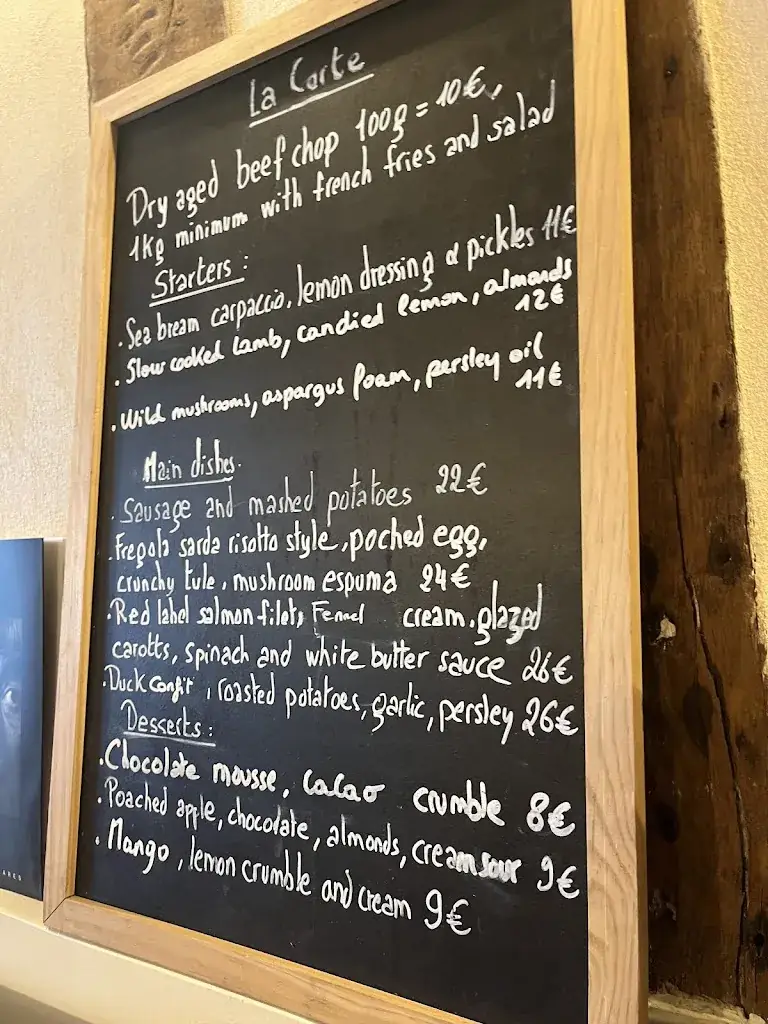 La Carte
Dry aged beef chop 100g = 10€,
1kg minimum with french fries and salad
Starters :
. Sea bream carpaccio, lemon dressing & pickles 11€
. Slow cooked lamb, candied lemon, almonds
12€
. Wild mushrooms, aspargus foam, persley oil
11€
Main dishes.
. Sausage and mashed potatoes 22€
. Fregola sarda risotto style, poched egg,
crunchy tule, mushroom espuma 24€
. Red label salmon filet, Fennel cream, glazed
carotts, spinach and white butter sauce 26€
. Duck confit, roasted potatoes, garlic, persley 26€
Desserts :
. Chocolate mousse, cacao crumble 8€
. Poached apple, chocolate, almonds, cream sour 9€
. Mango, lemon crumble and cream 9€